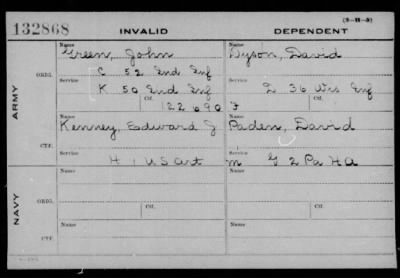 (3-H-5)
132868 INVALID DEPENDENT
Name Name
Green, John Dyson, David
ORIG. Service Service
C 52 Ind Inf
K 50 Ind Inf I 36 Wis Inf
Ctf. Ctf.
122690
ARMY
Name Name
Kenney, Edward J Paden, David
CTF. Service Service
H 1 US Art M G 2 Pa HA
Name Name
ORIG. Ctf. Ctf.
NAVY
Name Name
CTF.